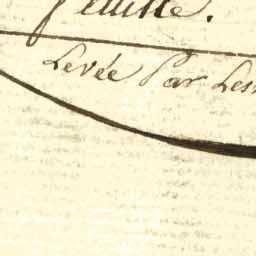 feuille.
Levée Par Les